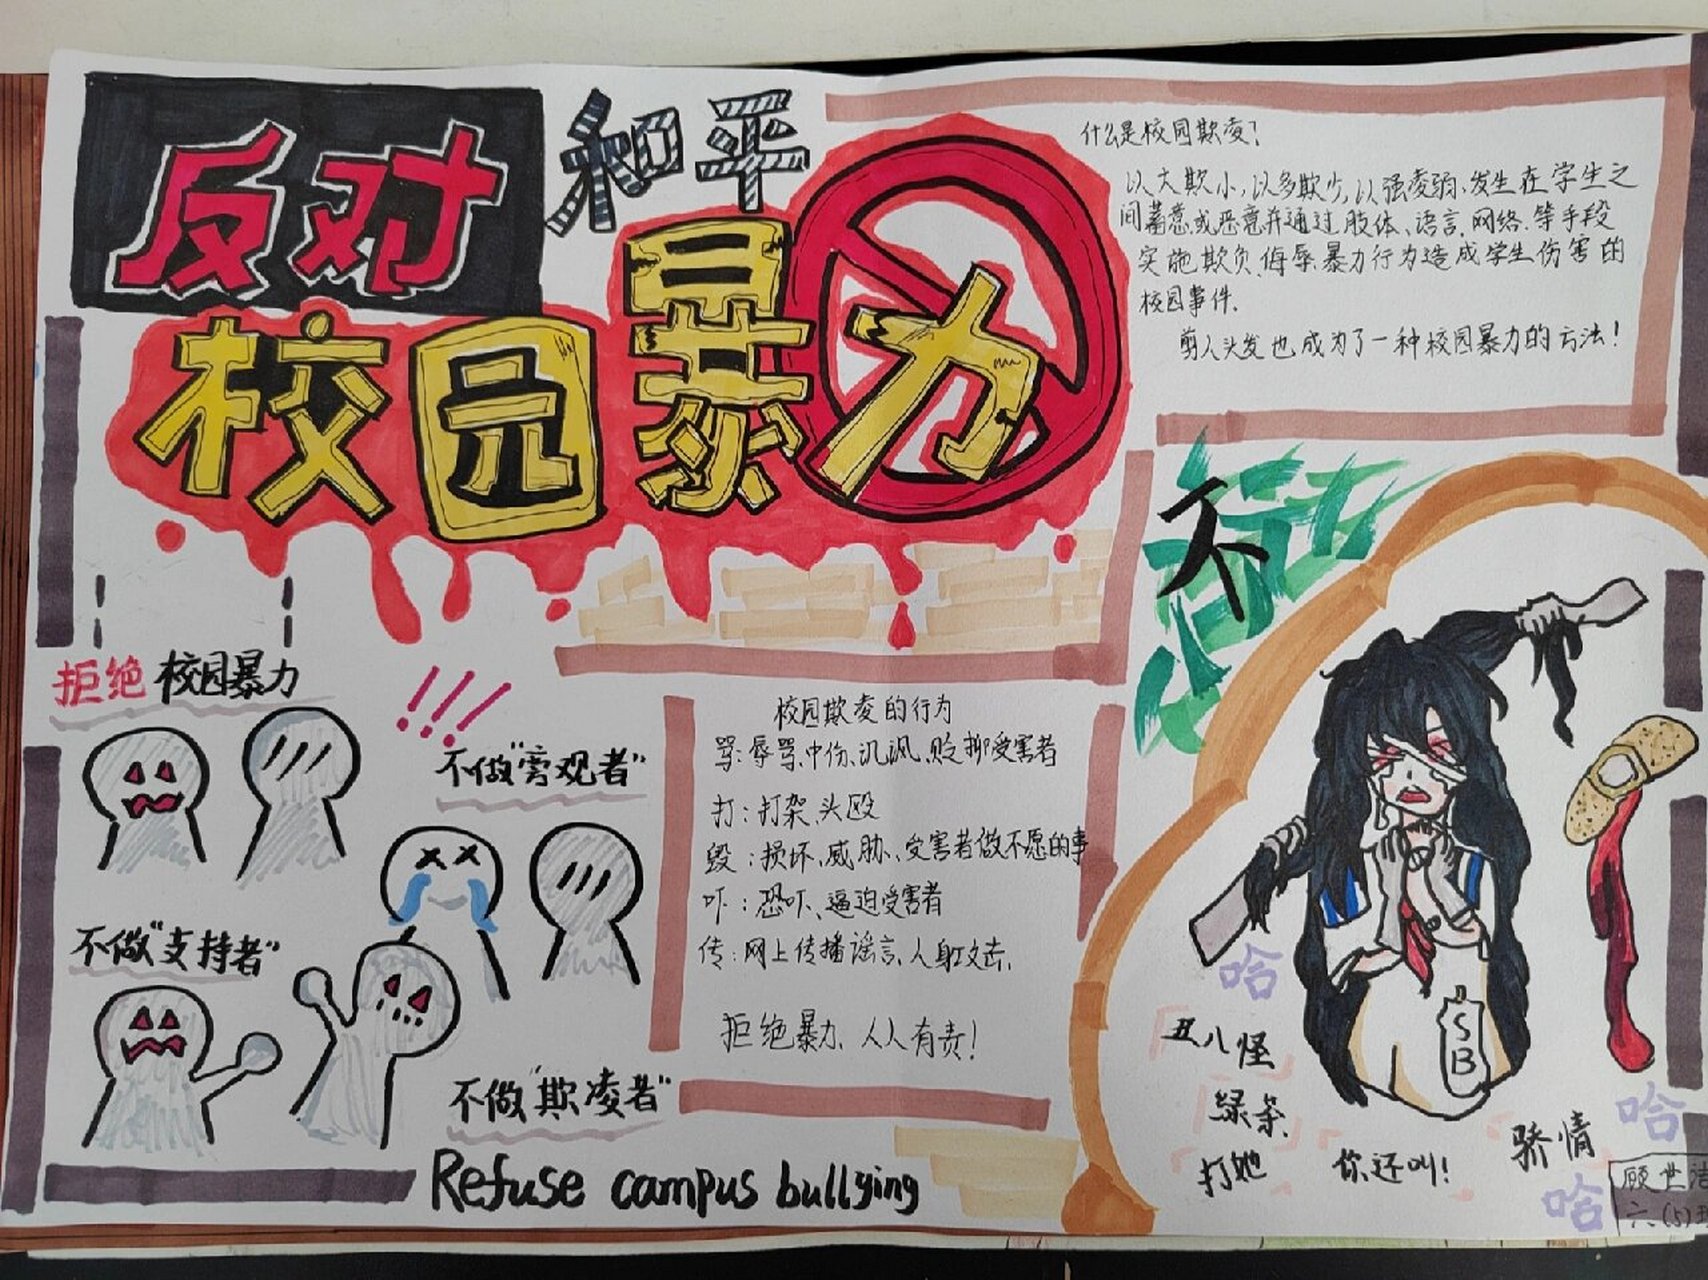 反对
和平
校园暴力
什么是校园欺凌?
以大欺小,以多欺少,以强凌弱、发生在学生之
间蓄意或恶意并通过肢体、语言、网络、等手段
实施欺负、侮辱、暴力行为造成学生伤害的
校园事件.
剪人头发也成为了一种校园暴力的方法!
不
拒绝校园暴力
!!!
不做“旁观者”
不做“支持者”
不做“欺凌者”
Refuse campus bullying
校园欺凌的行为
骂:辱骂、中伤、讥讽、贬抑受害者
打:打架、头殴
毁:损坏、威胁、受害者做不愿的事
吓:恐吓、逼迫受害者
传:网上传播谣言、人身攻击.
拒绝暴力、人人有责!
SB
哈
丑八怪
绿茶.
打她
你还叫!
骄情
哈
哈
顾世洁
六、(5)